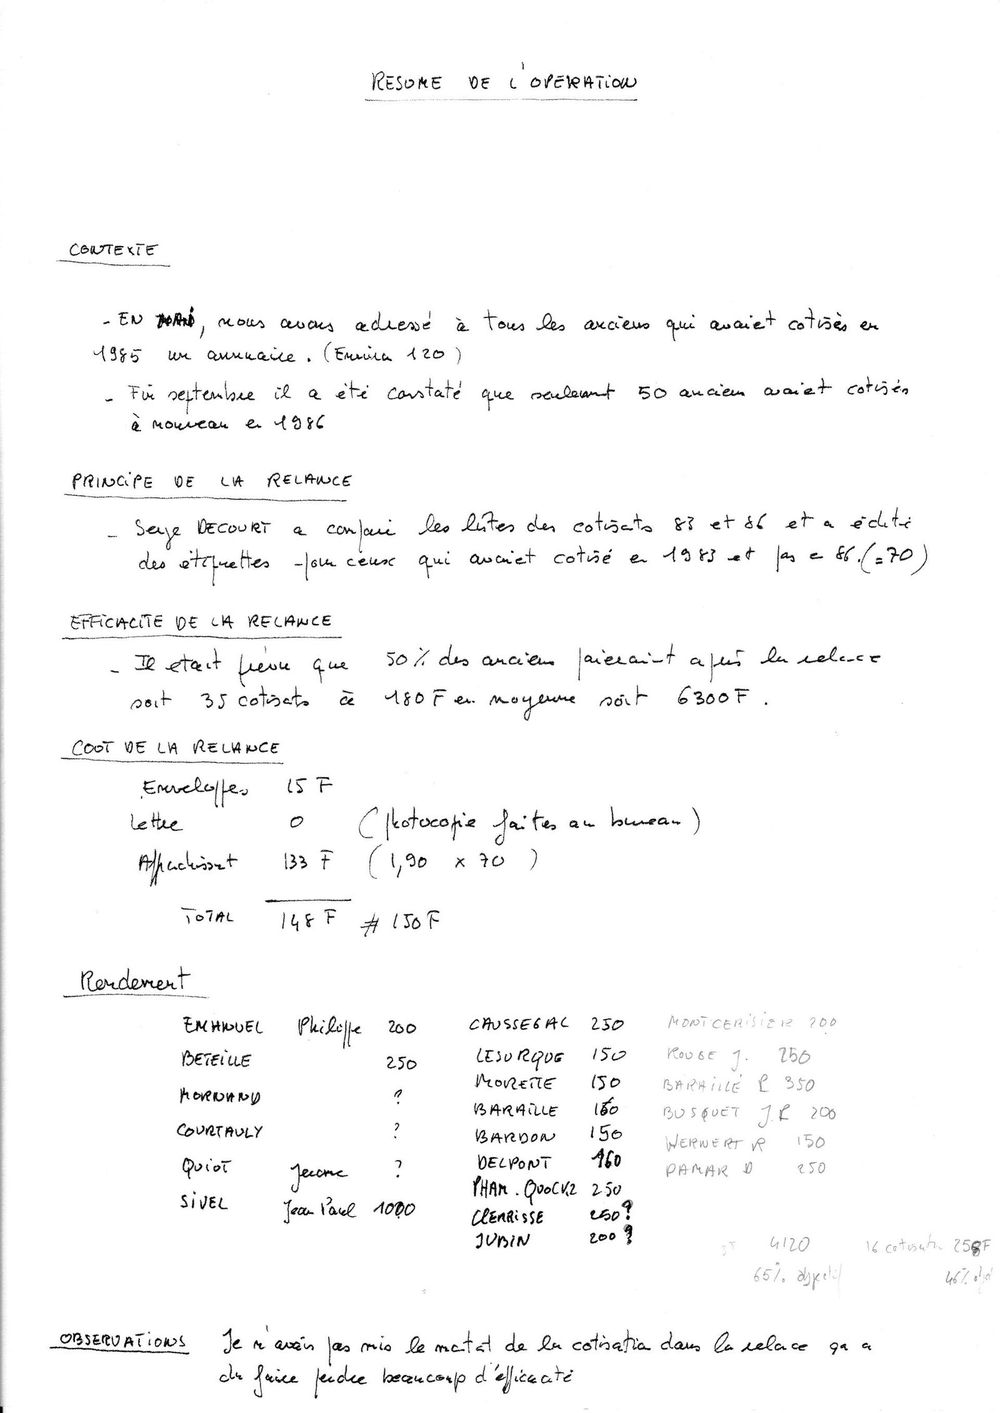 RESUME DE L'OPERATION
CONTEXTE
- EN MAI, nous avons adressé à tous les anciens qui avaient cotisés en
1985 un annuaire. (Environ 120)
- Fin septembre il a été constaté que seulement 50 anciens avaient cotisés
à nouveau en 1986
PRINCIPE DE LA RELANCE
- Serge DECOURT a comparé les listes des cotisants 83 et 86 et a édité
des étiquettes pour ceux qui avaient cotisé en 1983 et pas en 86. (=70)
EFFICACITE DE LA RELANCE
- Il etait prévu que 50% des anciens paieraient après la relance
soit 35 cotisants à 180F en moyenne soit 6300F.
COUT DE LA RELANCE
Enveloppes 15 F
Lettre 0 (photocopie faites au bureau)
Affranchissement 133 F (1,90 x 70)
TOTAL 148 F # 150 F
Rendement
EMANUEL Philippe 200 CAUSSEGAL 250 MONTCERISIER 200
BETEILLE 250 LESURQUE 150 ROUGE J. 250
MORNAND ? MORETTE 150 BARAILLÉ P 350
COURTAULY ? BARAILLE 160 BUSQUET J.P 200
QUIOT Jerome ? BARDON 150 WERWERT R 150
SIVEL Jean Paul 1000 DELPONT 160 DAMAR D 250
PHAM.QUOCK2 250
CLERISSE 250?
JUBIN 200?
4120 16 cotisants 258F
65% objectif 46% obj
OBSERVATIONS Je n'avais pas mis le montant de la cotisation dans la relance ça a
du faire perdre beaucoup d'éfficacité